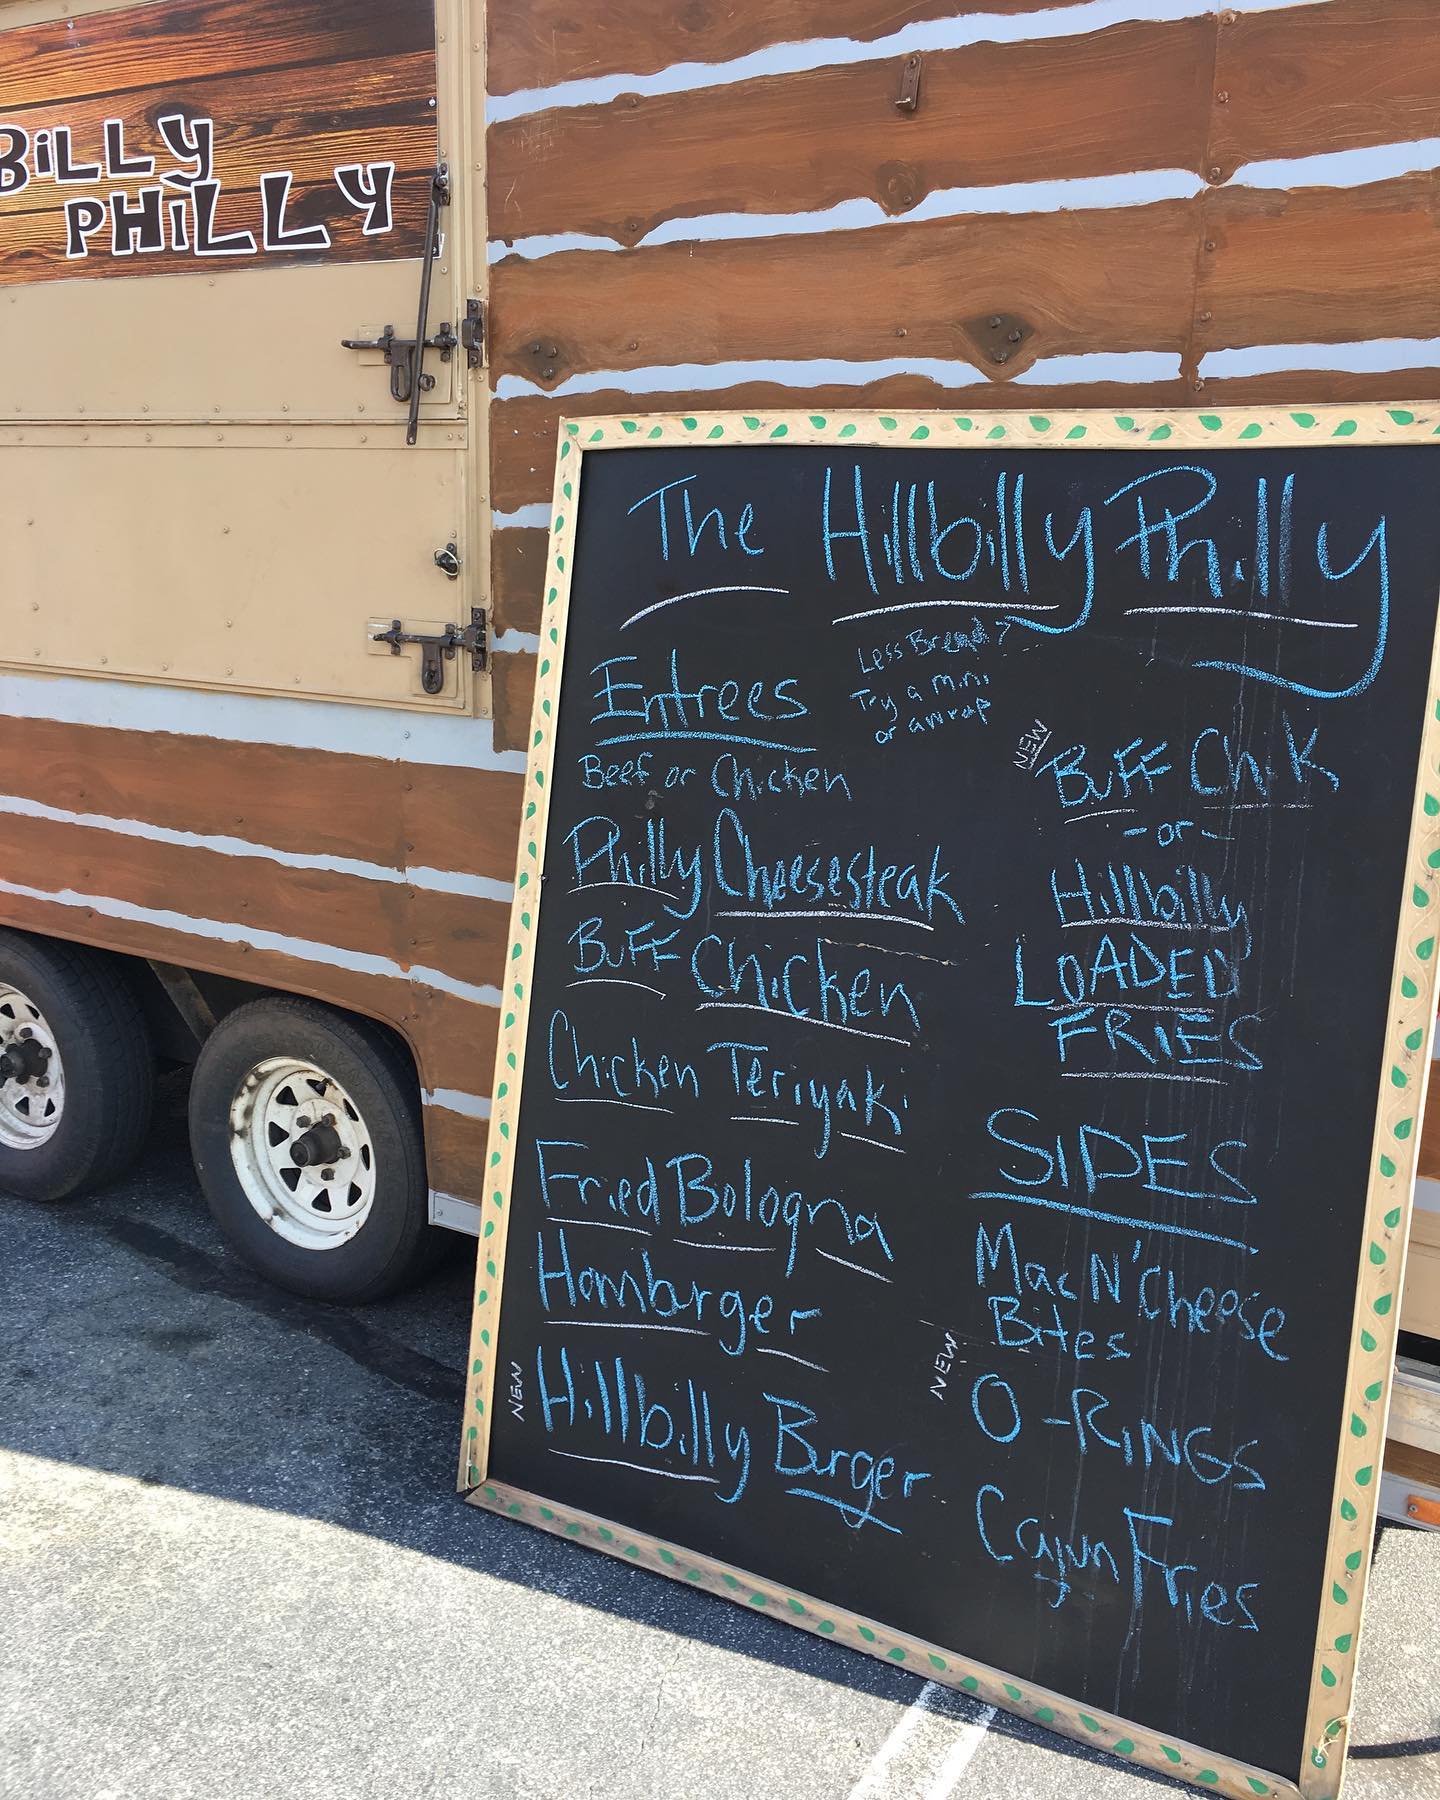 BiLLY
PHiLLY
The Hillbilly Philly
Less Bread?
Try a Mini
or a wrap
Entrees
Beef or Chicken
Philly Cheesesteak
BuFF Chicken
Chicken Teriyaki
Fried Bologna
Hamburger
NEW
Hillbilly Burger
NEW
BuFF Chik
-or-
Hillbilly
LOADED
FRIES
SIDES
Mac N' Cheese
Bites
NEW
O-RINGS
Cajun Fries